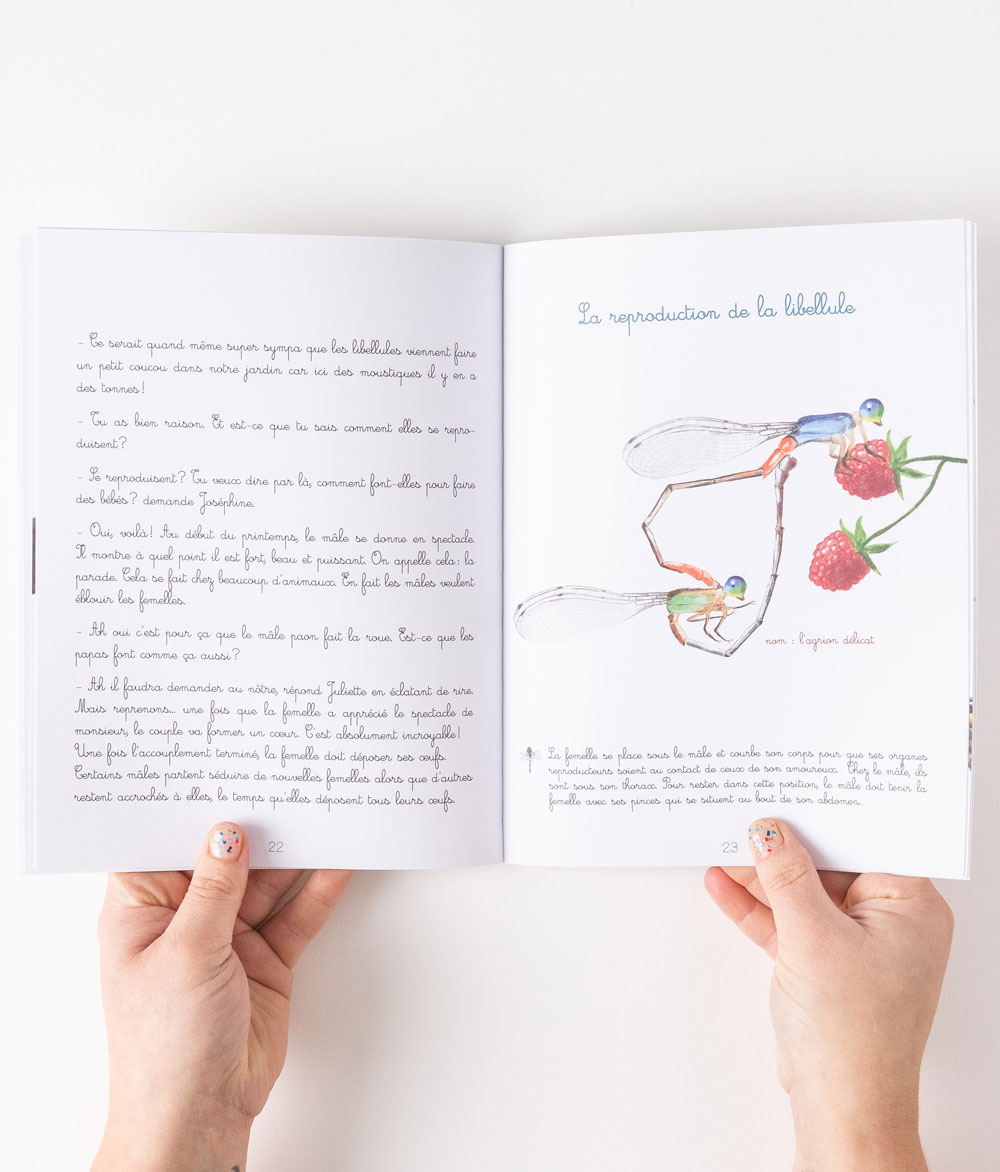 - Ce serait quand même super sympa que les libellules viennent faire
un petit coucou dans notre jardin car ici des moustiques il y en a
des tonnes !
- Tu as bien raison. Et est-ce que tu sais comment elles se repro-
duisent ?
- Se reproduisent ? Tu veux dire par là, comment font-elles pour faire
des bébés ? demande Joséphine.
- Oui, voilà ! Au début du printemps, le mâle se donne en spectacle.
Il montre à quel point il est fort, beau et puissant. On appelle cela : la
parade. Cela se fait chez beaucoup d'animaux. En fait les mâles veulent
éblouir les femelles.
- Ah oui c'est pour ça que le mâle paon fait la roue. Est-ce que les
papas font comme ça aussi ?
- Ah il faudra demander au nôtre, répond Juliette en éclatant de rire.
Mais reprenons... une fois que la femelle a apprécié le spectacle de
monsieur, le couple va former un cœur. C'est absolument incroyable !
Une fois l'accouplement terminé, la femelle doit déposer ses œufs.
Certains mâles partent séduire de nouvelles femelles alors que d'autres
restent accrochés à elles, le temps qu'elles déposent tous leurs œufs.
22
La reproduction de la libellule
nom : l'agrion délicat
La femelle se place sous le mâle et courbe son corps pour que ses organes
reproducteurs soient au contact de ceux de son amoureux. Chez le mâle, ils
sont sous son thorax. Pour rester dans cette position, le mâle doit tenir la
femelle avec ses pinces qui se situent au bout de son abdomen.
23